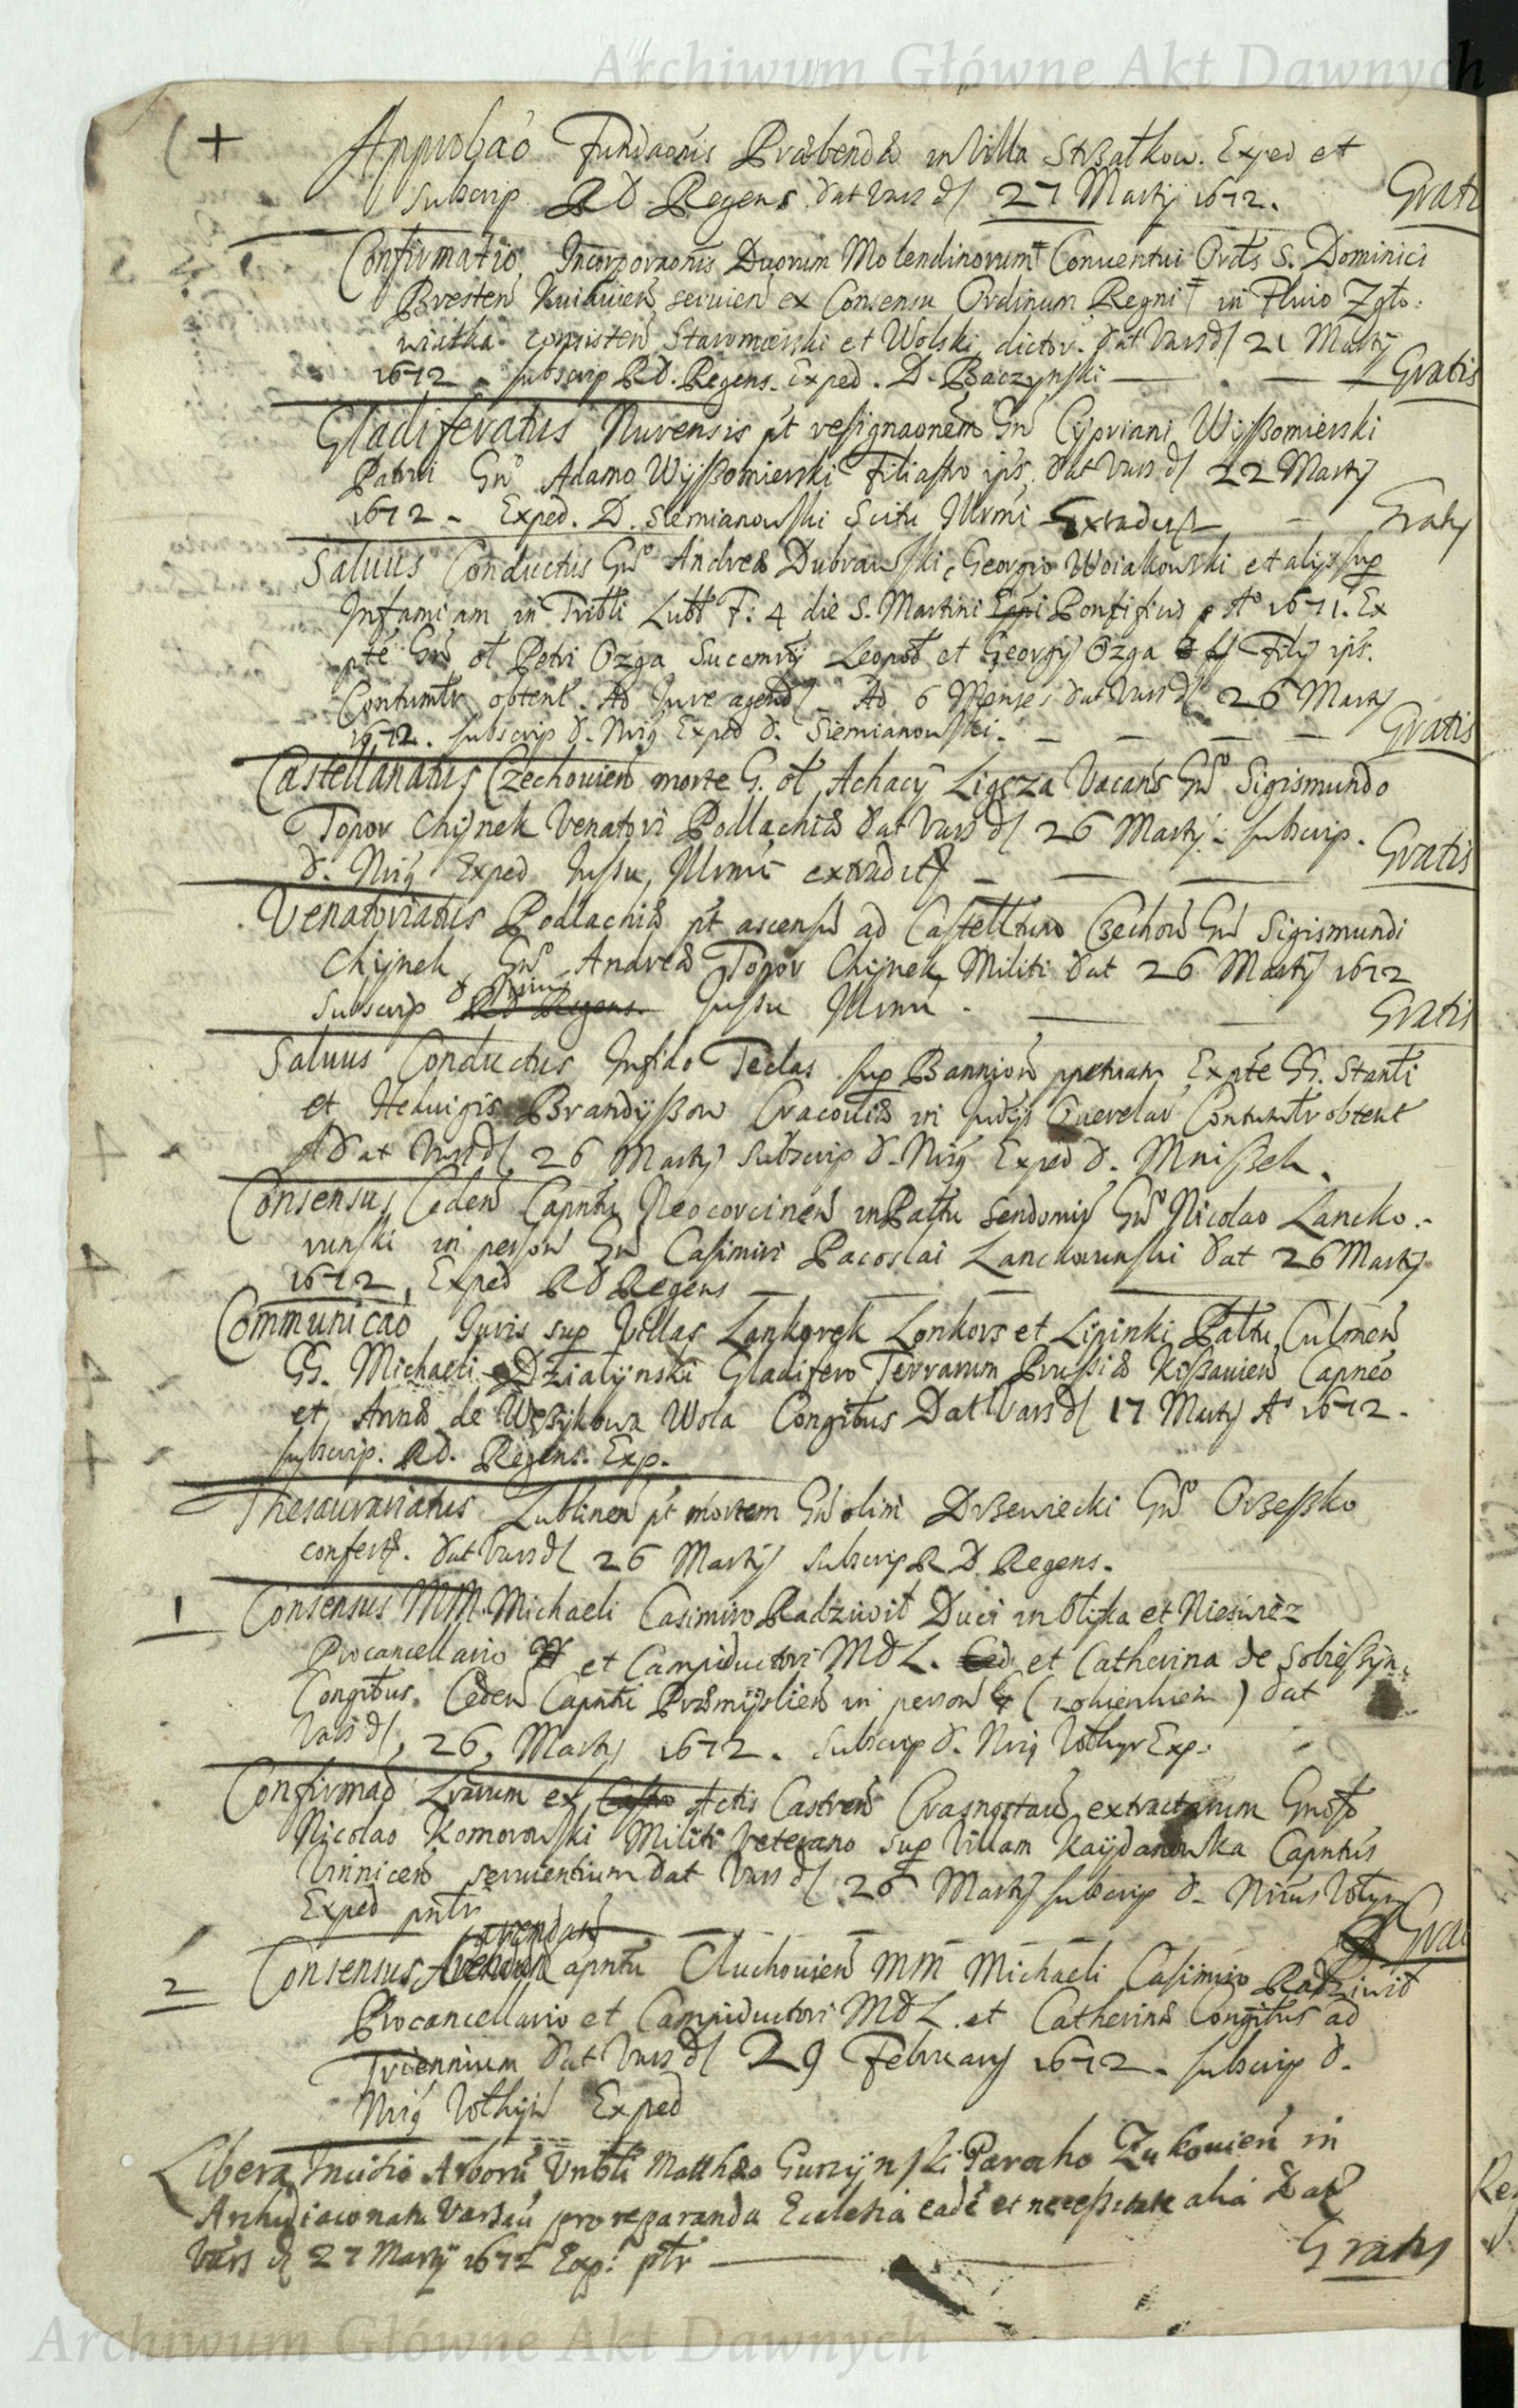 Archiwum Główne Akt Dawnych
Approbaō Fundaonis Præbendæ in Villa Strzałkow. Exped et
subscrip RD. Regens. dat Vars dſ 27 Martij 1672. Grati
Confirmatio Incorporaonis Duorum Molendinorum Conuentui Ordīs S. Dominici
Bresten Kuiauien seruien ex Consensu Ordinum Regni in Fluio Zgło:
wiatka consisten Staromieiski et Wolski dictor. dat Vars dſ 21 Martij
1672 - subscrip RD. Regens. Exped. D. Baczynski — Gratis
Gladiferatus Nurensis pt resignaonem Gn Cypriani Wyszomierski
Patrui Gnō Adamo Wyszomierski Filiastro ips. dat Vars dſ 22 Martij
1672 - Exped. D. Siemianowski Scitu Illrmi Extradit — Gratis
Saluus Conductus Gnō Andreæ Dubrawski, Georgio Woiakowski et alijs sup
Infamiam in Tribli Lubl F: 4 die S. Martini Pontificis Aº 1671. Ex
pte Gn ol Petri Ozga Succamrij Leopol et Georgij Ozga Filij ips.
Contumtr obtent. Ad Jure agend Ad 6 Menses dat Vars dſ 26 Martij
1672. subscrip d. Nrig Exped d. Siemianowski. — Gratis
Castellanatus Czechouien morte G. ol Achacij Ligęza Vacans Gnō Sigismundo
Topor Chijnek Venatori Podlachiæ dat Vars dſ 26 Martij - subscrip.
d. Nrig Exped Jussu Illrmi extradit — Gratis
Venatoriatus Podlachiæ pt ascensū ad Castelltum Czechow Gn Sigismundi
Chijnek, Gnō Andreæ Topor Chijnek Militi dat 26 Martij 1672
Subscrip d RD Regens. Jussu Illrmi. — Gratis
Saluus Conductus Infido Teclas sup Bannion ppetuam Expte GG. Stanli
et Heduigis Brandyszow Cracouiæ in Judijs Querelar Contumtr obtent
dat Vars dſ 26 Martij subscrip d. Nrig Exped d. Mniszek.
Consensus Ceden Capntu Neocorcinen in Pattu Sendomir Gnō Nicolao Lancko-
runski in person Gn Casimiri Pacoslai Lanckorunski dat 26 Martij
1672, Exped RD Regens —
Communicaō Juris sup Villas Lankorek Lonkorz et Lipinki Pattu Culmen
GG. Michaeli Działijnski Gladifero Terrarum Prussiæ Kiszauien Capneo
et Annæ de Wezykowa Wola Congibus Dat Vars dſ 17 Martij Aº 1672.
subscrip. RD. Regens. Exp.
Thesaurariatus Lublinen pt mortem Gn olim Drzewiecki Gnō Orzeszko
confert. dat Vars dſ 26 Martij subscrip RD Regens.
1 Consensus MM. Michaeli Casimiro Radziwił Duci in Ołyka et Nieswiez
Procancellario et Campiductori MDL. Ced et Catherina de Sobieszyn.
Congibus. Ceden Capnti Przæmijslien in person (cohientiem) dat
Vars dſ, 26, Martij 1672. subscrip d. Nrig Exp.
Confirmaō Lrarum ex Castro Actis Castren Crasnostauien extractarum Gnoso
Nicolao Komorowski Militi Veterano sup Villam Kaijdanowska Capntus
Vinnicen seruientium dat Vars dſ 26 Martij subscrip d. Nrius
Exped pntr Grat
arendan
2 Consensus Arendan Capntu Cluchouien MM Michaeli Casimiro Radziwił
Procancellario et Campiductori MDL. et Catherinæ Congibus ad
Triennium dat Vars dſ 29 February 1672 - subscrip d.
Nrig Exped
Libera Incisio Arborū Vnbli Matthæo Gurzijnski Parocho Zukouien in
Archidiaconatu Varsau pro reparanda Ecclesia eade et necessitate alia Dat
Vars dſ 27 Martij 1672 Exp: ptr — Gratis
Archiwum Główne Akt Dawnych